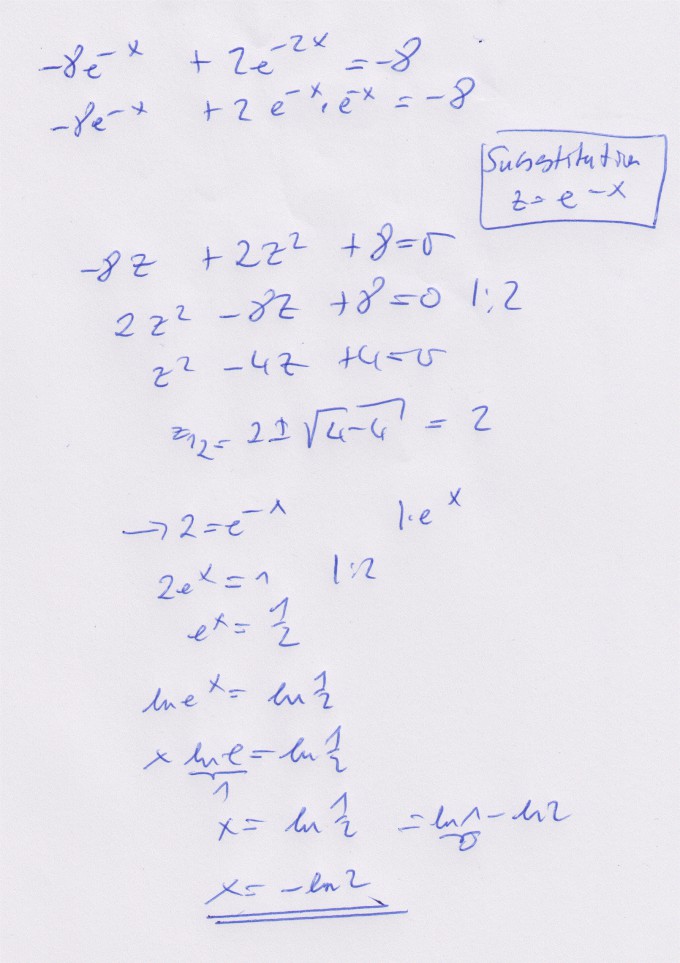 -8e^-x + 2e^-2x = -8
-8e^-x + 2 e^-x · e^-x = -8
Substitution
z = e^-x
-8z + 2z² + 8 = 0
2z² - 8z + 8 = 0 |:2
z² - 4z + 4 = 0
z₁₂ = 2 ± √(4-4) = 2
→ 2 = e^-x |· e^x
2e^x = 1 |:2
e^x = 1/2
ln e^x = ln 1/2
x ln e = ln 1/2
1
x = ln 1/2 = ln 1 - ln 2
0
x = -ln 2